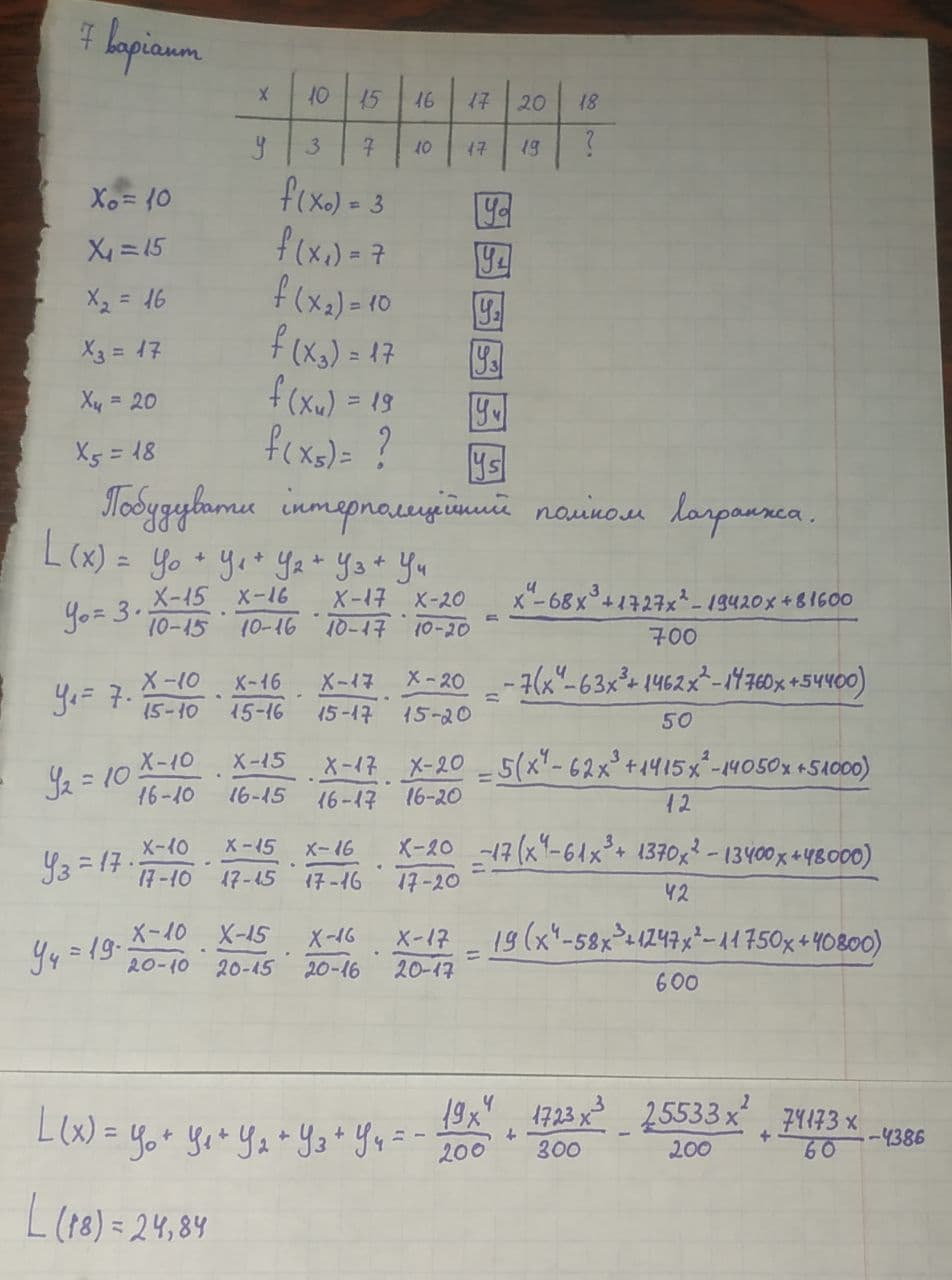 7 варіант
x | 10 | 15 | 16 | 17 | 20 | 18
y | 3 | 7 | 10 | 17 | 19 | ?
x₀ = 10 f(x₀) = 3 y₀
x₁ = 15 f(x₁) = 7 y₁
x₂ = 16 f(x₂) = 10 y₂
x₃ = 17 f(x₃) = 17 y₃
x₄ = 20 f(x₄) = 19 y₄
x₅ = 18 f(x₅) = ? y₅
Побудувати інтерполяційний поліном Лагранжа.
L(x) = y₀ + y₁ + y₂ + y₃ + y₄
y₀ = 3 · (x-15)/(10-15) · (x-16)/(10-16) · (x-17)/(10-17) · (x-20)/(10-20) = (x⁴-68x³+1727x²-19420x+81600)/700
y₁ = 7 · (x-10)/(15-10) · (x-16)/(15-16) · (x-17)/(15-17) · (x-20)/(15-20) = -7(x⁴-63x³+1462x²-14760x+54400)/50
y₂ = 10 (x-10)/(16-10) · (x-15)/(16-15) · (x-17)/(16-17) · (x-20)/(16-20) = 5(x⁴-62x³+1415x²-14050x+51000)/12
y₃ = 17 · (x-10)/(17-10) · (x-15)/(17-15) · (x-16)/(17-16) · (x-20)/(17-20) = -17(x⁴-61x³+1370x²-13400x+48000)/42
y₄ = 19 · (x-10)/(20-10) · (x-15)/(20-15) · (x-16)/(20-16) · (x-17)/(20-17) = 19(x⁴-58x³+1247x²-11750x+40800)/600
L(x) = y₀ + y₁ + y₂ + y₃ + y₄ = - 19x⁴/200 + 1723x³/300 - 25533x²/200 + 74173x/60 - 4386
L(18) = 24,84